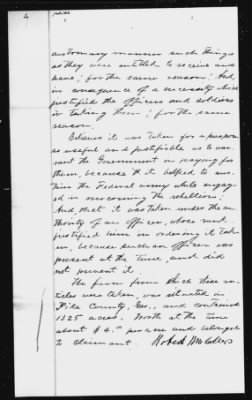 customary manner such things
as they were entitled to receive and
have; for the same reason; And,
in consequence of a necessity which
justified the officers and soldiers
in taking them; for the same
reason.
Believes it was taken for a purpose
so useful and justifiable as to war-
rant the Government in paying for
them, because it helped to sus-
tain the Federal army while engag-
ed in overcoming the rebellion;
And that it was taken under the au-
thority of an officer, whose rank
justified him in ordering it tak-
en, because such an officer was
present at the time, and did
not prevent it.
The farm from which these ar-
ticles were taken, was situated in
Pike County, Geo., and contained
1325 acres. Worth at the time
about $4.00 per acre and belonged
to claimant. Robert